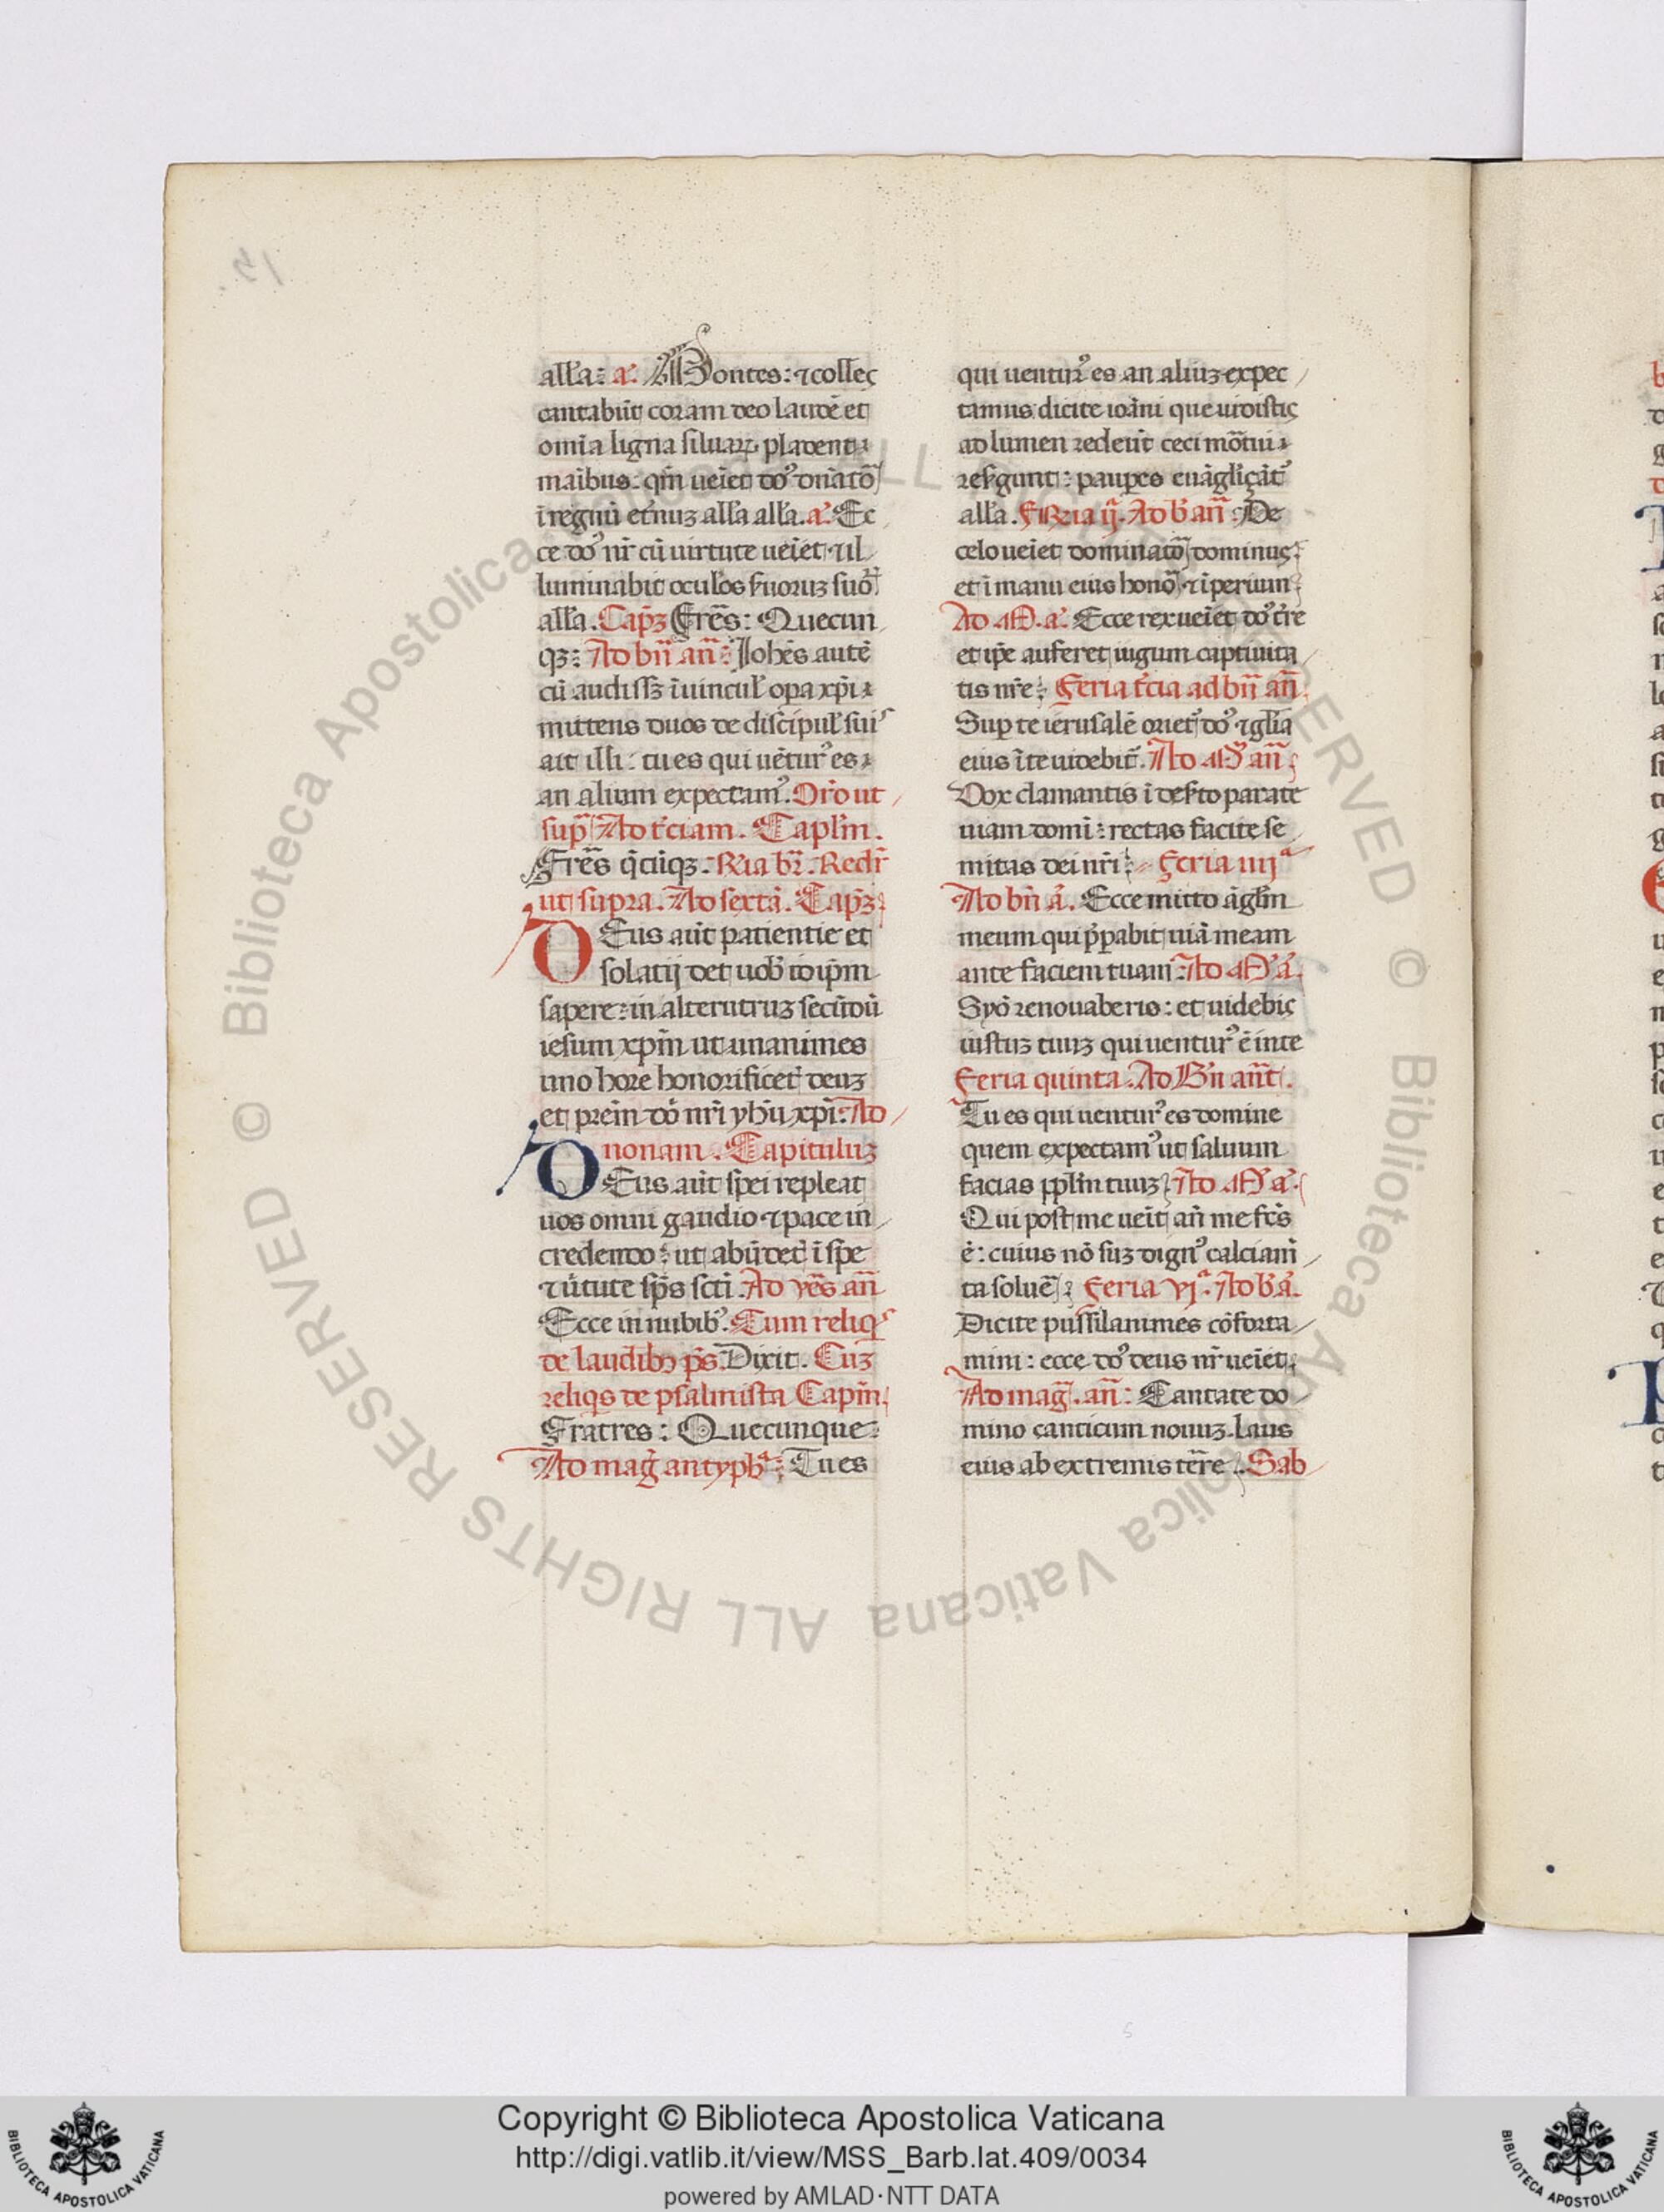 all'a: a'. Montes: ⁊ colleç
cantabūt coram deo laudē et
om̄ia ligna siluaꝝ. plaudent ı
maībus. qm̄ ueīet dō' dn̄atō
ī regnū et'nuʒ all'a all'a. a'. Ec
ce dō' nr̄ cū uirtute ueīet. ⁊ il
luminabit oculos s'uoruʒ suō
all'a. Cap̄ʒ Frēs: Quecun
qʒ: Ad bn̄ an̄: Joh̄es autē
cū audissʒ ī uincul' opa xp̄i ı
mittens duos de discipul' suis
ait illi: tu es qui uētur' es ı
an alium expectam'. Or̄o ut
sup̄ Ad t'ciam. Capl'm.
Frēs q̄cūqʒ. R̄ia br̄. Redr̄
ut supra. Ad sextā. Cap̄ʒ
DEus aūt patientie et
solatij det uob' idip̄m
sapere: in alterutruʒ secūdū
iesum xp̄m ut unanimes
uno hore honorificet' deuʒ
et prēm dō' nr̄i yh̄u xp̄i: Ad
nonam. Capituluʒ
DEus aūt spei repleat
uos omni gaudio ⁊ pace in
credendo: ut abūdet' ī spe
⁊ ūtute sp̄s sct̄i. Ad ves̄ an̄
Ecce in nubib'. Cum reliqs
de laudibʒ p̄s. Dixit. Cuʒ
reliqs de psalmista Capm̄.
Fratres: Quecunque:
Ad maḡ antyph̄ᵃ: Tu es
qui uentur' es an aliuʒ expec
tamus: dicite ioāni que uidistiç
ad lumen redeūt ceci mōtui ı
res'gunt: paupes euāgl'içāt'
all'a. FEria ij. Ad b' an̄: De
celo ueiet dominatō dominuç
et ī manu eius honō ⁊ īperium
Ad M. a'. Ecce rex ueīet dō' t'r̄e
et ip̄e auferet iugum captiuita
tis nr̄e: Feria t'cia ad bn̄ an̄
Sup te ierusalē oriet' dō' ⁊ gl'ia
eius ī te uidebit'. Ad M' an̄
Vox clamantis ī des'to parate
uiam domi: rectas facite se
mitas dei nr̄i: Feria iiijᵃ
Ad bn̄ ā. Ecce mitto āgl'm
meum qui p̄pabit uiā meam
ante faciem tuam: Ad M' ā.
Syō renouaberis: et uidebiç
iustuʒ tuuʒ qui uentur' ē in te
Feria quinta. Ad B'n an̄t.
Tu es qui uentur' es domine
quem expectam' ut saluum
facias ppl'm tuuʒ Ad M' ā.
Qui post me ueīt an̄ me fc̄s
ē: cuius nō suʒ dign' calciam̄
ta soluē: Feria vjᵃ. Ad b. ā.
Dicite pussilanimes cōforta
mini: ecce dō' deus nr̄ ueīet.
Ad mag. an̄: Cantate do
mino canticum nouuʒ. laus
eius ab extremis tēre. Sab
© Biblioteca Apostolica Vaticana ALL RIGHTS RESERVED
Copyright © Biblioteca Apostolica Vaticana
http://digi.vatlib.it/view/MSS_Barb.lat.409/0034
powered by AMLAD·NTT DATA
BIBLIOTECA APOSTOLICA VATICANA
BIBLIOTECA APOSTOLICA VATICANA